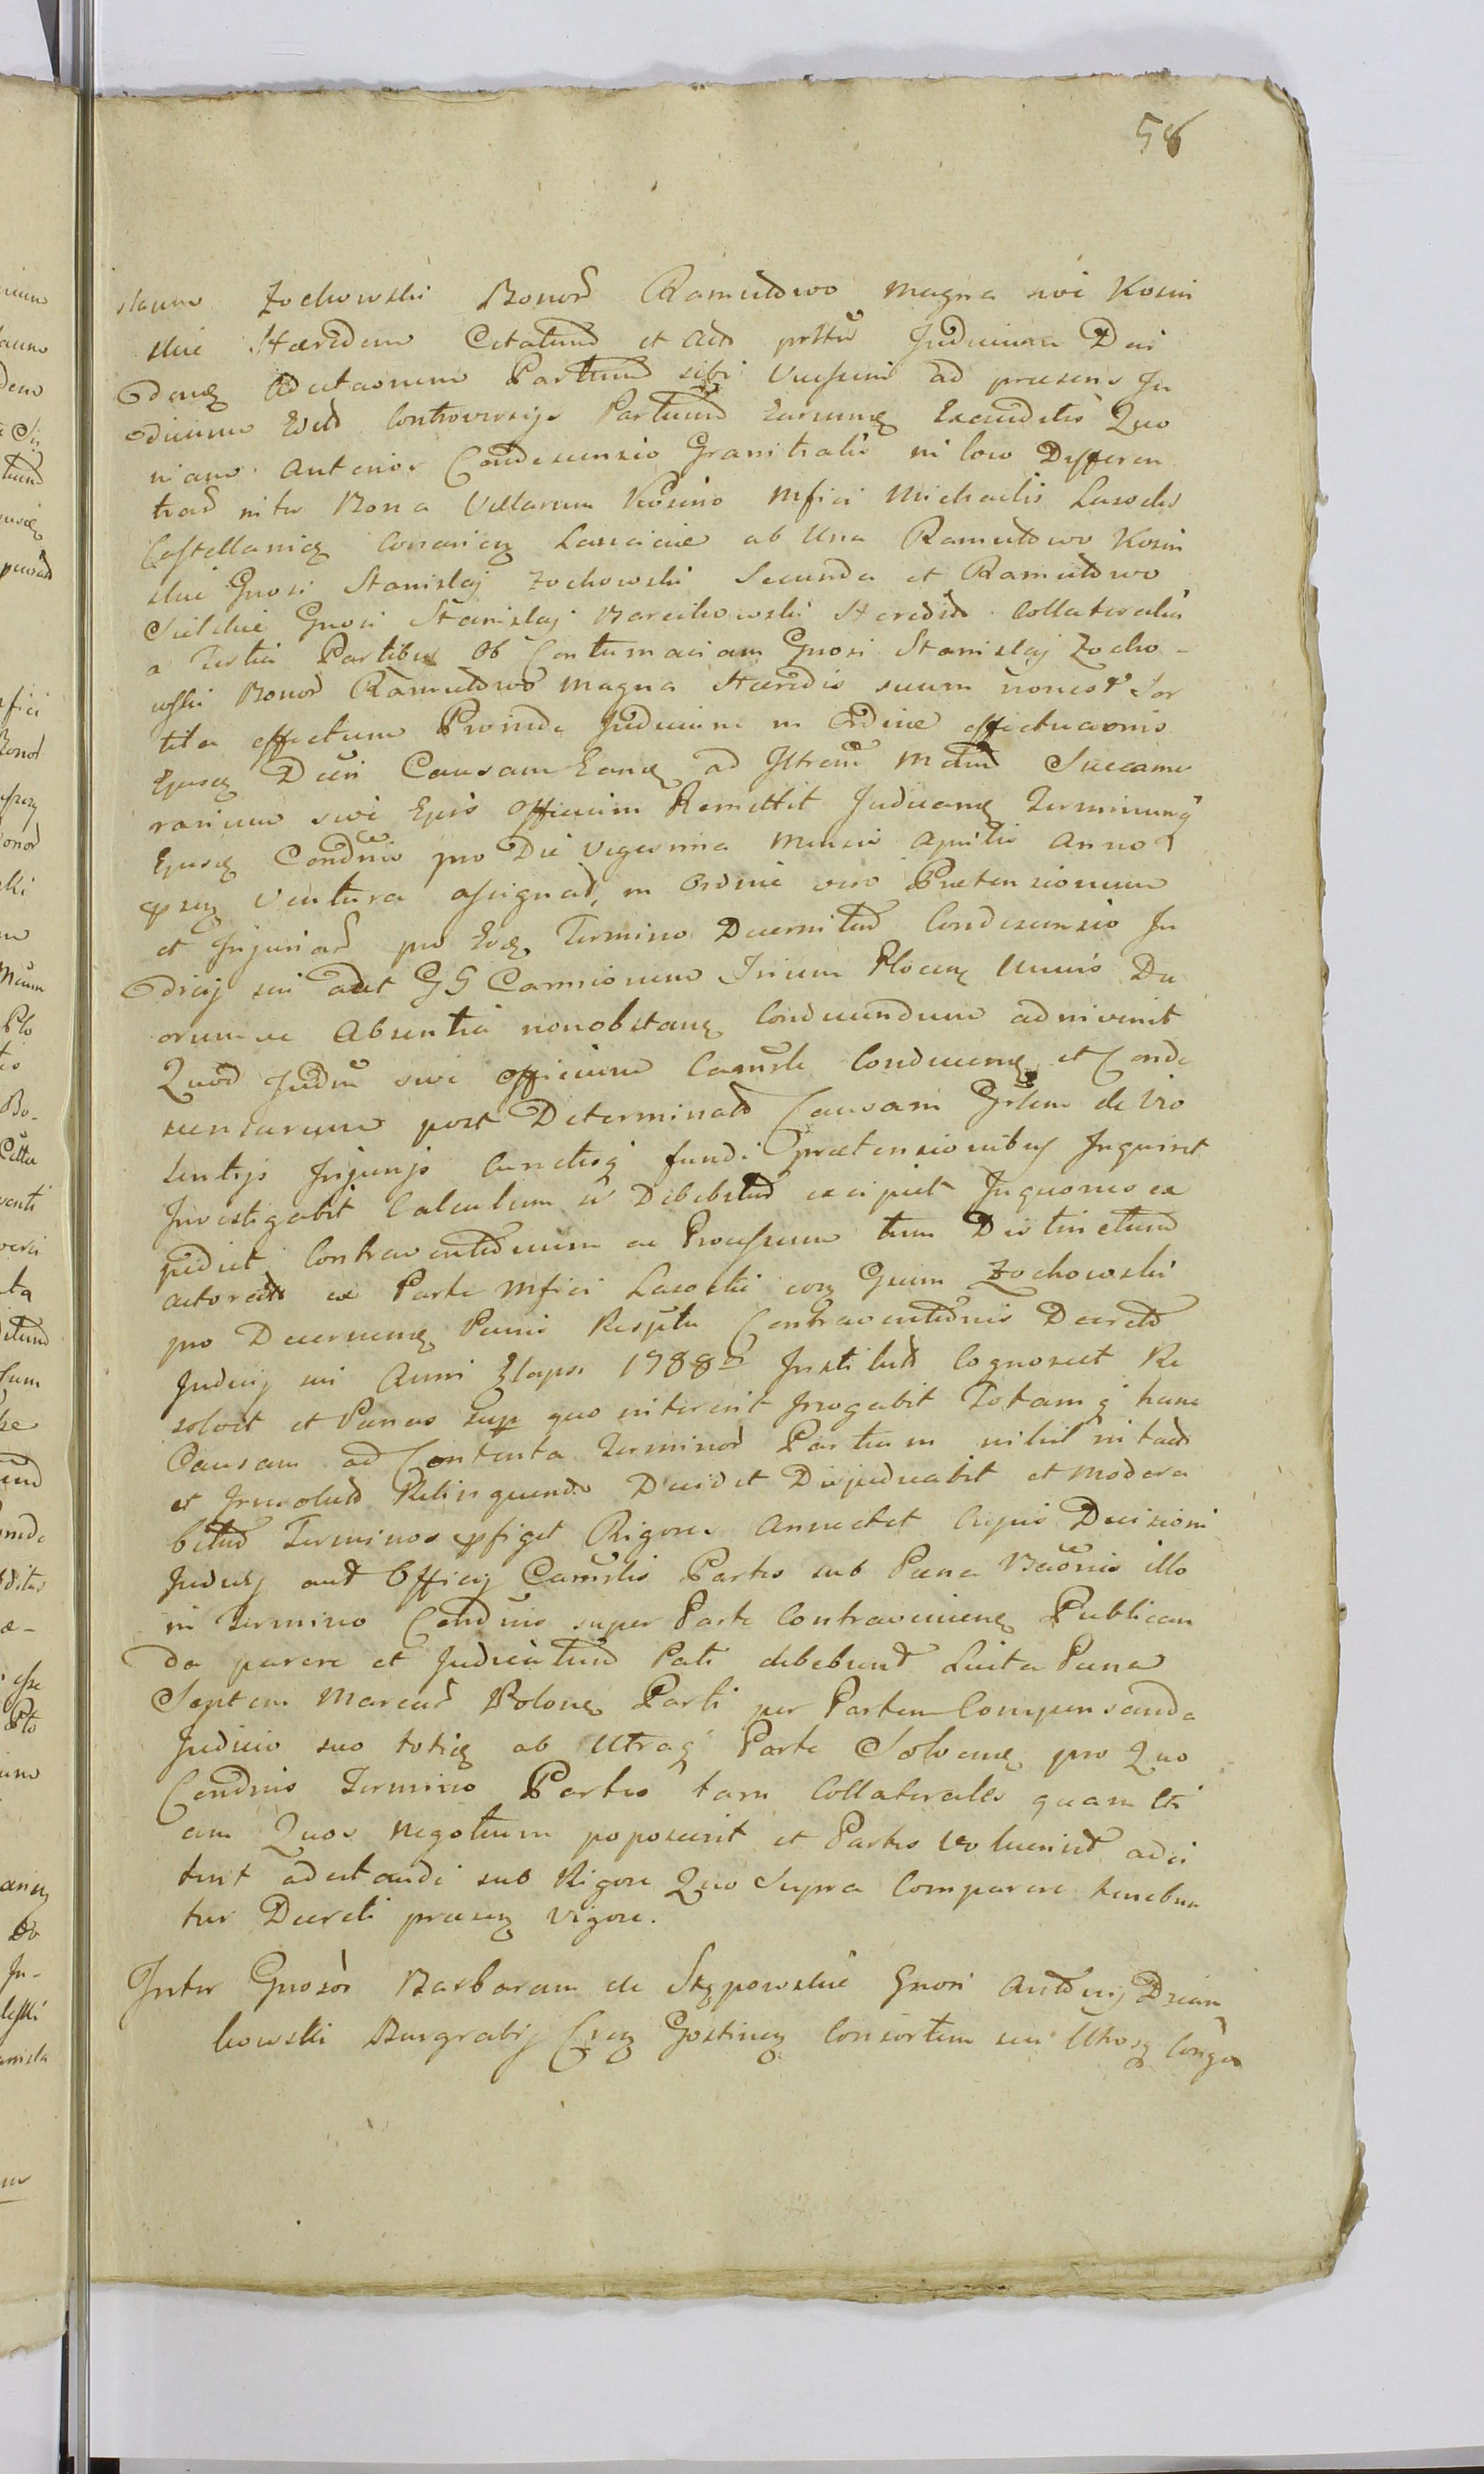 58
slaum Zochowski Bonor Ramutowo Magna sive Kosin
skie Hæredem Citatum et Acto prsttu Judicium Deci
denq Adcitaonem Partium sibi Vicissim ad præsens Ju
dicium Controversijs Partium Earumq Exauditis Quo
niam Anterior Condescensio Granitialis in loco Differen
tiar inter Bona Villarum Kosino Mfici Michaelis Lasocki
Castellanicz Conarien Lanciciæ ab Una Ramutowo Kosin
skie Gnosi Stanislaj Zochowski Secunda et Ramutowo
Sielskie Gnosi Stanislaj Barcikowski Hæredis Collateralis
a Tertia Partibus Ob Contumaciam Gnosi Stanislaj Zocho-
wski Bonor Ramutowo Magna Hæredis suum non est sor
tita effectum Proinde Judicium in Ordine effectuaonis
Ejusq Causam Eanq ad Succame
rarium sive Ejus Officium Remittit Judicanq Terminumq
Ejusq Condnis pro Die Vigesima Mensis Aprilis Anno
prsen Ventura assignat, in Ordine vero Prætensionum
et Injuriar pro Eoq Termino Decernitur Condescensio Ju
dicij sui GG Camrionum Trium Plocen Unius Du
orumve Absentia nonobstanq Condescendendum adinvenit
Quod Judm sive Officium Camrale Conducenq et Conde
scensurum post Determinat Causam Grlem de Vio
lentijs Injurijs Cunctisq fundi prætensionibus Inquiret
Investigabit Calculum si Debebitur excipiet Inquones ex
pediet Contraventionum ac Processuum tum Distinctum
actorat ex Parte Mfici Lasocki con Gnum Zochowski
pro Decernenq Pænis Respectu Contraventionis Decreto
Judicij sui Anni Elapsi 1788 Institut Cognoscet Re
solvet et Pænas Sup quo interint Irrogabit Totamq hanc
Causam ad Contenta Terminor Partium nihil intact
et Irresolut Relinquendo Decidet Dijudicabit et Modera
bitur Terminos pfiget Rigores Annectet Cujus Decisioni
Judicij aut Officij Camralis Partes sub Pæna Bannis illo
in Termino Condnis super Parte Contravenienq Publican
da parere et Judicatum Pati debebunt Luita Pæna
Septem Marcar Polonq Parti per Partem Compensanda
Judicio suo totieq ab Utraq Parte Solvenq pro Quo
Condnis Termino Partes tam Collaterales quam Eti
am Quos Negotium poposcerit et Partes Voluerint adci
tent adcitandi sub Rigore Quo Supra Comparere tenebun
tur Decreti præsen Vigore.
Inter Gnosos Barbaram de Stępowskie Gnosi Antonij Dzian
kowski Burgrabij Gostinen Consortem seu Utrosq Conges